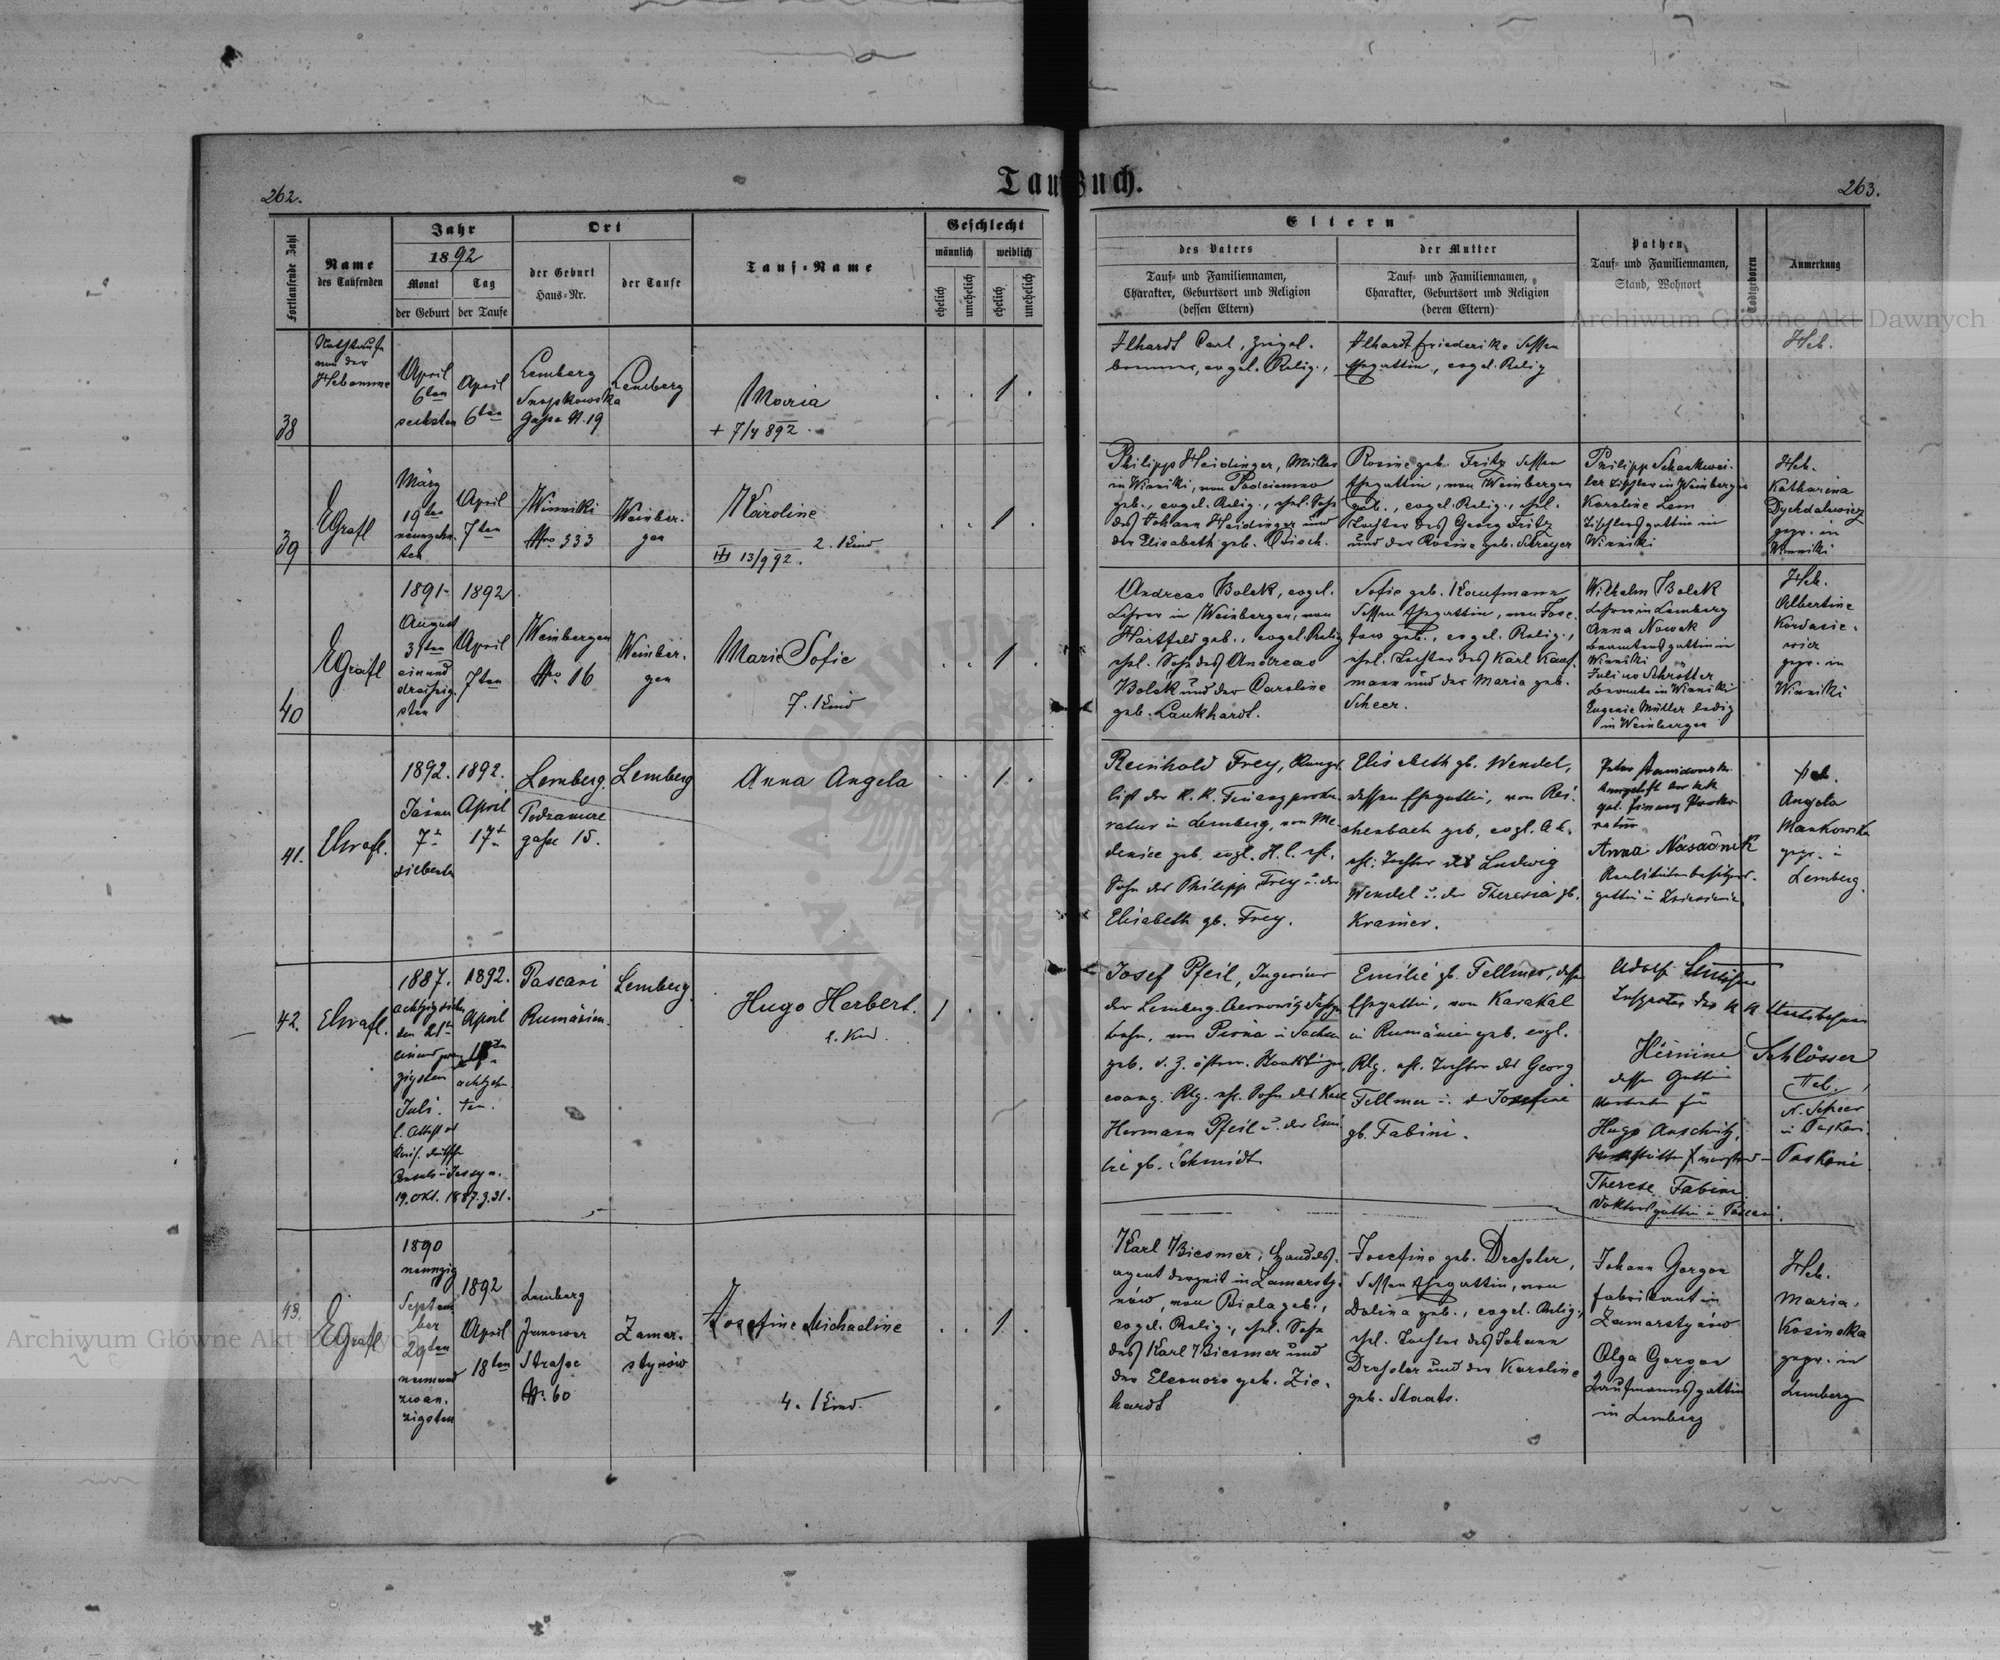 262.
Taufbuch.
263.
Fortlaufende Zahl
Name
des Taufenden
Jahr
1892
Monat
der Geburt
Tag
der Taufe
Ort
der Geburt
Haus-Nr.
der Taufe
Tauf-Name
Geschlecht
männlich
weiblich
ehelich
unehelich
ehelich
unehelich
Eltern
des Vaters
Tauf- und Familiennamen,
Charakter, Geburtsort und Religion
(dessen Eltern)
der Mutter
Tauf- und Familiennamen,
Charakter, Geburtsort und Religion
(deren Eltern)
Pathen
Tauf- und Familiennamen,
Stand, Wohnort
Todtgeboren
Anmerkung
Archiwum Główne Akt Dawnych
38
Nothtaufe
von der
Hebamme
April
6ten
sechsten
April
6ten
Lemberg
Snopkowska
Gasse N. 19
Lemberg
Maria
+ 7/4 892.
1
Ilhardt Carl, Ziegel-
brenner, evgel. Relig.,
Ilhardt Friederike dessen
Ehegattin, evgel. Relig
Heb.
39
EGrafl
März
19ten
neunzehn-
ten
April
7ten
Winniki
Nro 333
Weinber-
gen
Karoline
2. Kind
13/9 92.
1
Philipp Heidinger, Müller
in Winniki, von
geb., evgel. Relig., ehel. Sohn
des Johann Heidinger und
der Elisabeth geb. Disch.
Rosine geb. Fritz dessen
Ehegattin, von Weinbergen
geb., evgel. Relig., ehel.
Tochter des Georg Fritz
und der Rosine geb. Schreyer
Philipp Schankwei-
ler Tischler in Weinbergen
Karoline Lem
Tischlersgattin in
Winniki
Heb.
Katharina
Dychdalewicz
gepr. in
Winniki
40
EGrafl
1891
August
31ten
einund
dreißig-
sten
1892
April
7ten
Weinbergen
Nro 16
Weinber-
gen
Marie Sofie
7. Kind
1
Andreas Bolek, evgel.
Lehrer in Weinbergen, von
Hartfeld geb., evgel. Relig
ehel. Sohn des Andreas
Bolek und der Caroline
geb. Lankhardt.
Sofie geb. Kaufmann
dessen Ehegattin, von Jose-
fow geb., evgel. Relig.,
ehel. Tochter des Karl Kauf-
mann und der Maria geb.
Scheer.
Wilhelm Bolek
Lehrer in Lemberg
Anna Nowak
Beamtensgattin in
Winniki
Julius Schrötter
Beamte in Winniki
Eugenie Müller ledig
in Weinbergen
Heb.
Albertine
Kordasie-
wicz
gepr. in
Winniki
41.
EGrafl.
1892.
Jänner
7
siebente
1892.
April
17
Lemberg
Podzamcze
gasse 15.
Lemberg
Anna Angela
1
Reinhold Frey, Kanzel-
list der k. k. Finanzprocu-
ratur in Lemberg, von Me-
denice geb. evgl. H. C. ehl.
Sohn des Philipp Frey u. der
Elisabeth gb. Frey.
Elisabeth gb. Wendel,
dessen Ehegattin, von Rei-
chenbach geb. evgl. A. C.
ehl. Tochter des Ludwig
Wendel u. der Theresia gb.
Kramer.
Anna Nasadnik
Realitätenbesitzers-
gattin in
Heb.
Angela
Mankowska
gepr. in
Lemberg.
42.
EGrafl.
1887.
achtzigsieben
den 21ten
einundzwan-
zigsten
Juli.
19. Okt. 1887. Z. 31.
1892.
April
18ten
achtzehn-
ten.
Pascani
Rumänien.
Lemberg
Hugo Herbert.
1. Kind.
1
Josef Pfeil, Ingenieur
der Lemberg Czernowitz Jassyer
bahn, von Pirna in Sachsen
geb. d. Z. österr. Staatsbürger,
evang. Rlg. ehl. Sohn des Karl
Hermann Pfeil u. der Emi-
lie gb. Schmidt
Emilie gb. Fellmer, dessen
Ehegattin, von Karakal
in Rumänien geb. evgl.
Rlg. ehl. Tochter des Georg
Fellmer u. d. Josefine
gb. Fabini.
Adolf
Inspector der k. k. Staatsbahnen
Hermine Schlösser
dessen Gattin
Vertreter für
Hugo Anschütz,
Therese Fabini
Doktorsgattin in Pascani.
Heb.
N. Scheer
in Paskani.
Paskani
43.
EGrafl
1890
neunzig
Septem
ber
29ten
neunund
zwan-
zigsten
1892
April
18ten
Lemberg
Janower
Strasse
Nr. 60
Zamar-
stynów
Josefine Michaeline
4. Kind
1
Karl Biesmer, Handels-
agent derzeit in Zamarsty-
nów, von Biala geb.,
evgel. Relig., ehel. Sohn
des Karl Biesmer und
der Eleonore geb. Zie-
hardt
Josefine geb. Dressler,
dessen Ehegattin, von
Dolina geb., evgel. Relig.,
ehel. Tochter des Johann
Dressler und der Karoline
geb. Staats.
Johann Gorgon
Fabrikant in
Zamarstynów
Olga Gorgon
Kaufmannsgattin
in Lemberg
Heb.
Maria
Kosinska
gepr. in
Lemberg
Archiwum Główne Akt Dawnych